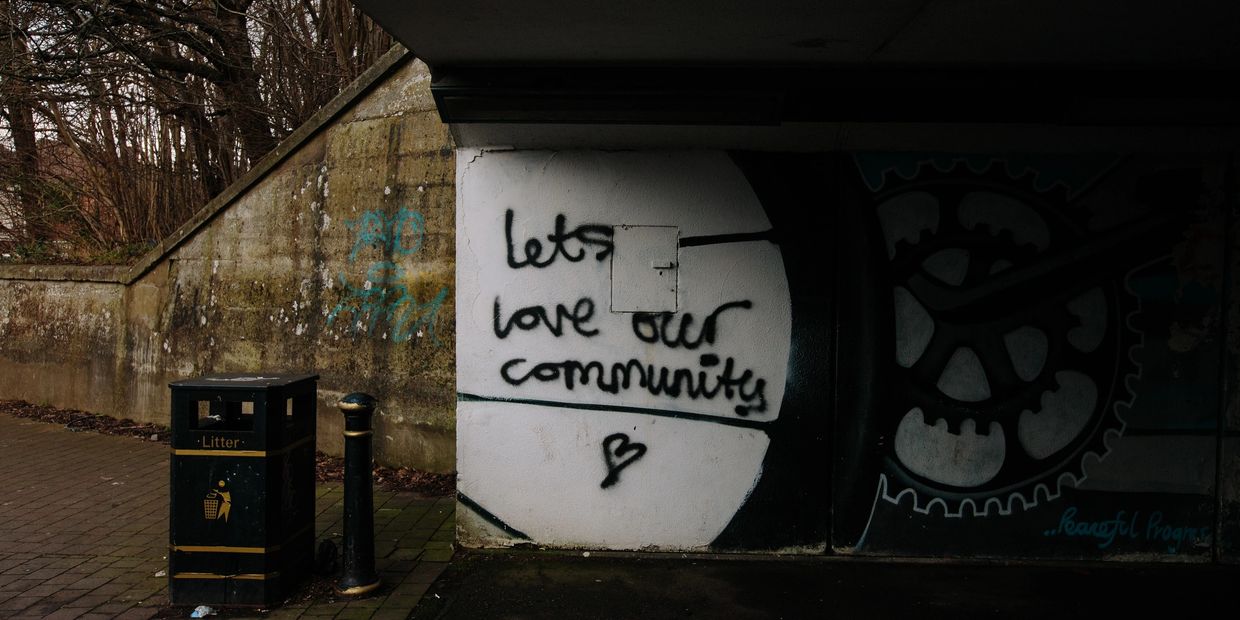 Litter
lets
love our
community
..Peaceful